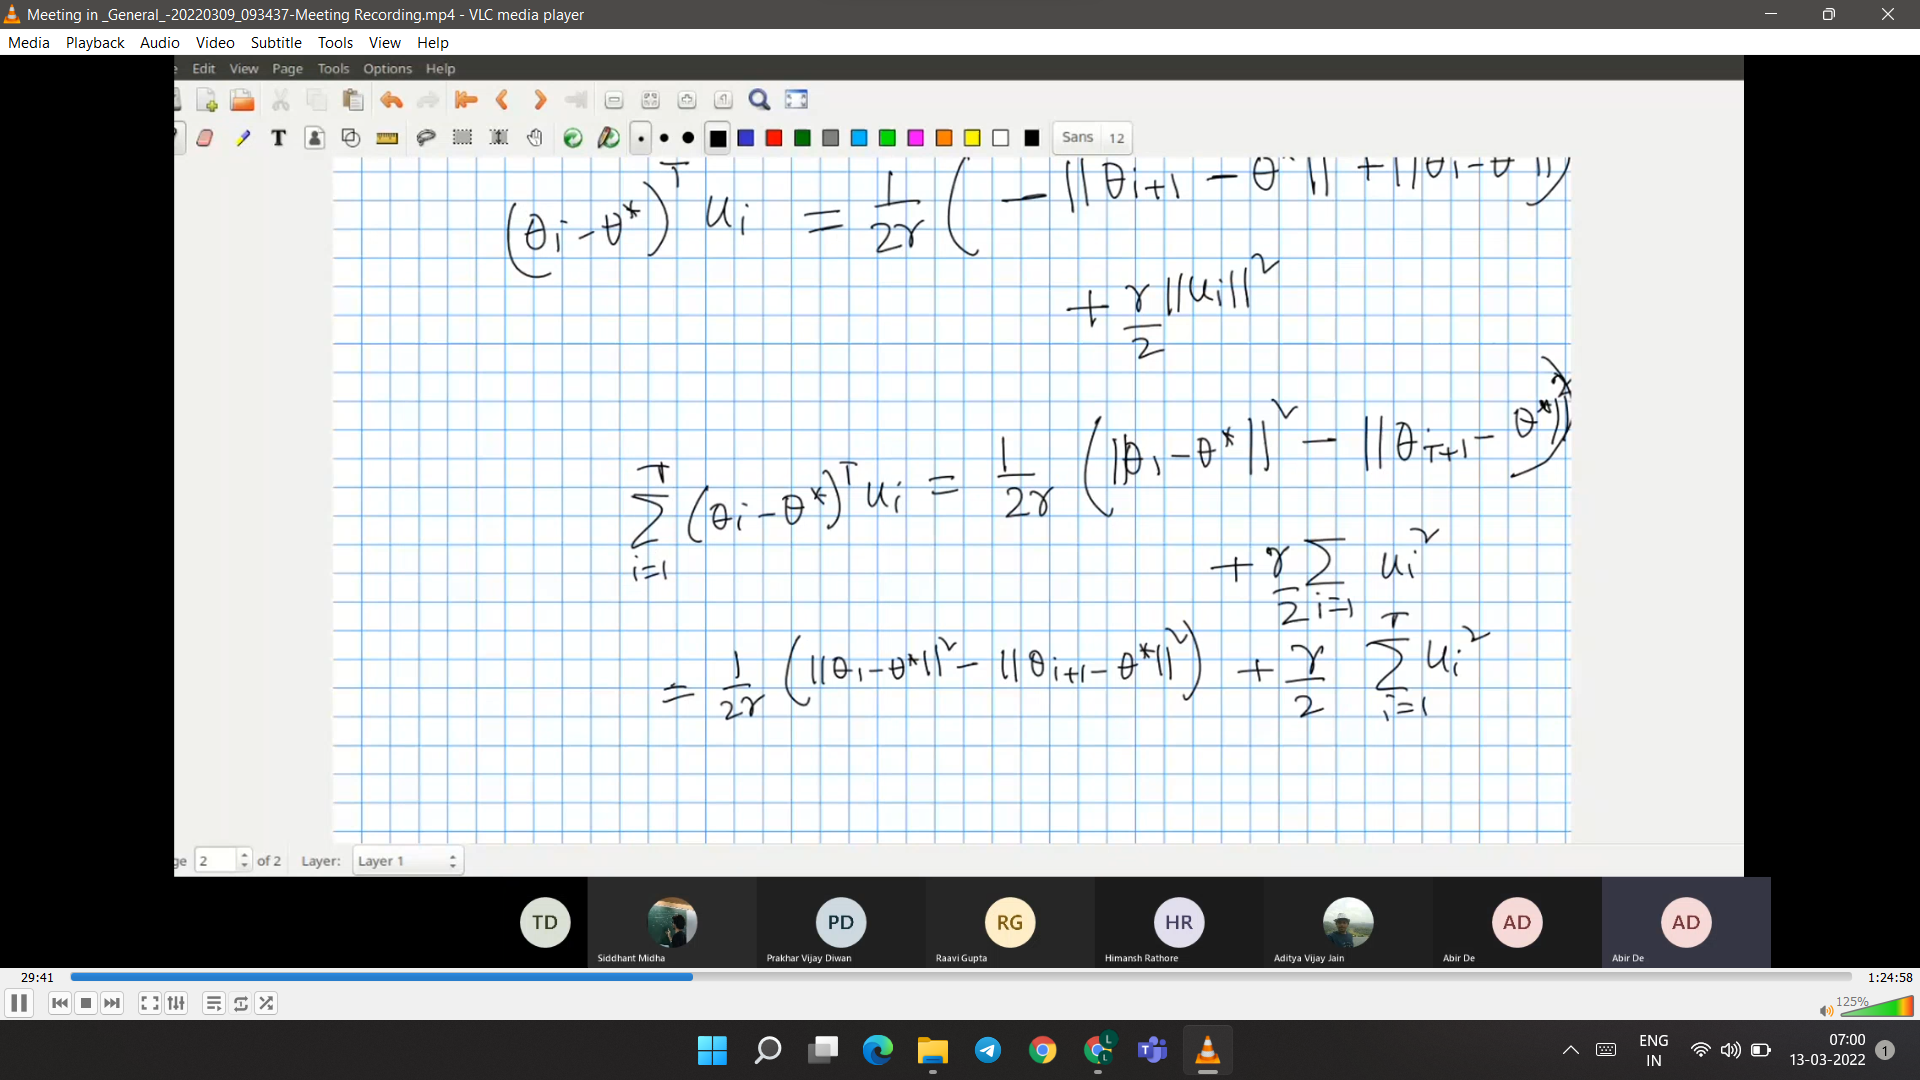 Meeting in _General_-20220309_093437-Meeting Recording.mp4 - VLC media player
Media Playback Audio Video Subtitle Tools View Help
Edit View Page Tools Options Help
Sans 12
(θi - θ*)^T ui = 1/2γ ( - ||θi+1 - θ*|| + ||θi - θ*||)
+ γ/2 ||ui||^2
T∑i=1 (θi - θ*)^T ui = 1/2γ (||θ1 - θ*||^2 - ||θT+1 - θ*||^2)
+ γ/2 ∑i=1 ui^2
= 1/2γ (||θ1 - θ*||^2 - ||θi+1 - θ*||^2) + γ/2 T∑i=1 ui^2
ge 2 of 2 Layer: Layer 1
TD PD RG HR AD AD
Siddhant Midha Prakhar Vijay Diwan Raavi Gupta Himansh Rathore Aditya Vijay Jain Abir De Abir De
29:41 1:24:58
125%
L
L
ENG
IN
07:00
13-03-2022
1